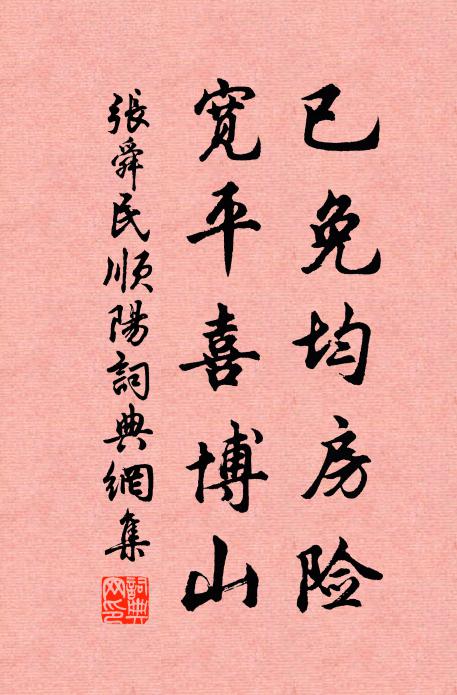 已免均房险
宽平喜博山
張舜民順陽詞典網集
詞典网印